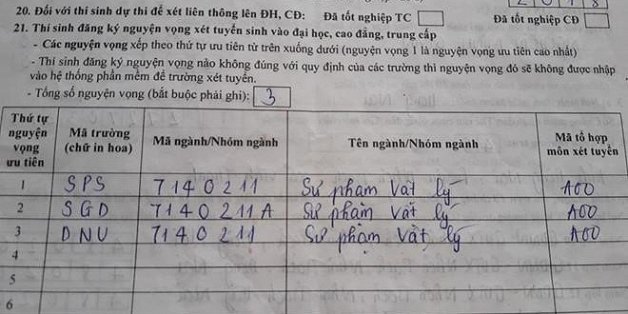 2 0 1 8
20. Đối với thí sinh dự thi để xét liên thông lên ĐH, CĐ: Đã tốt nghiệp TC Đã tốt nghiệp CĐ
21. Thí sinh đăng ký nguyện vọng xét tuyển sinh vào đại học, cao đẳng, trung cấp
- Các nguyện vọng xếp theo thứ tự ưu tiên từ trên xuống dưới (nguyện vọng 1 là nguyện vọng ưu tiên cao nhất)
- Thí sinh đăng ký nguyện vọng nào không đúng với quy định của các trường thì nguyện vọng đó sẽ không được nhập
vào hệ thống phần mềm để trường xét tuyển.
- Tổng số nguyện vọng (bắt buộc phải ghi): 3
Thứ tự
nguyện
vọng
ưu tiên
Mã trường
(chữ in hoa)
Mã ngành/Nhóm ngành
Tên ngành/Nhóm ngành
Mã tổ hợp
môn xét tuyển
1 SPS 7140211 Sư phạm Vật lý A00
2 SGD 7140211A Sư phạm Vật lý A00
3 DNU 7140211 Sư phạm Vật lý A00
4
5
6